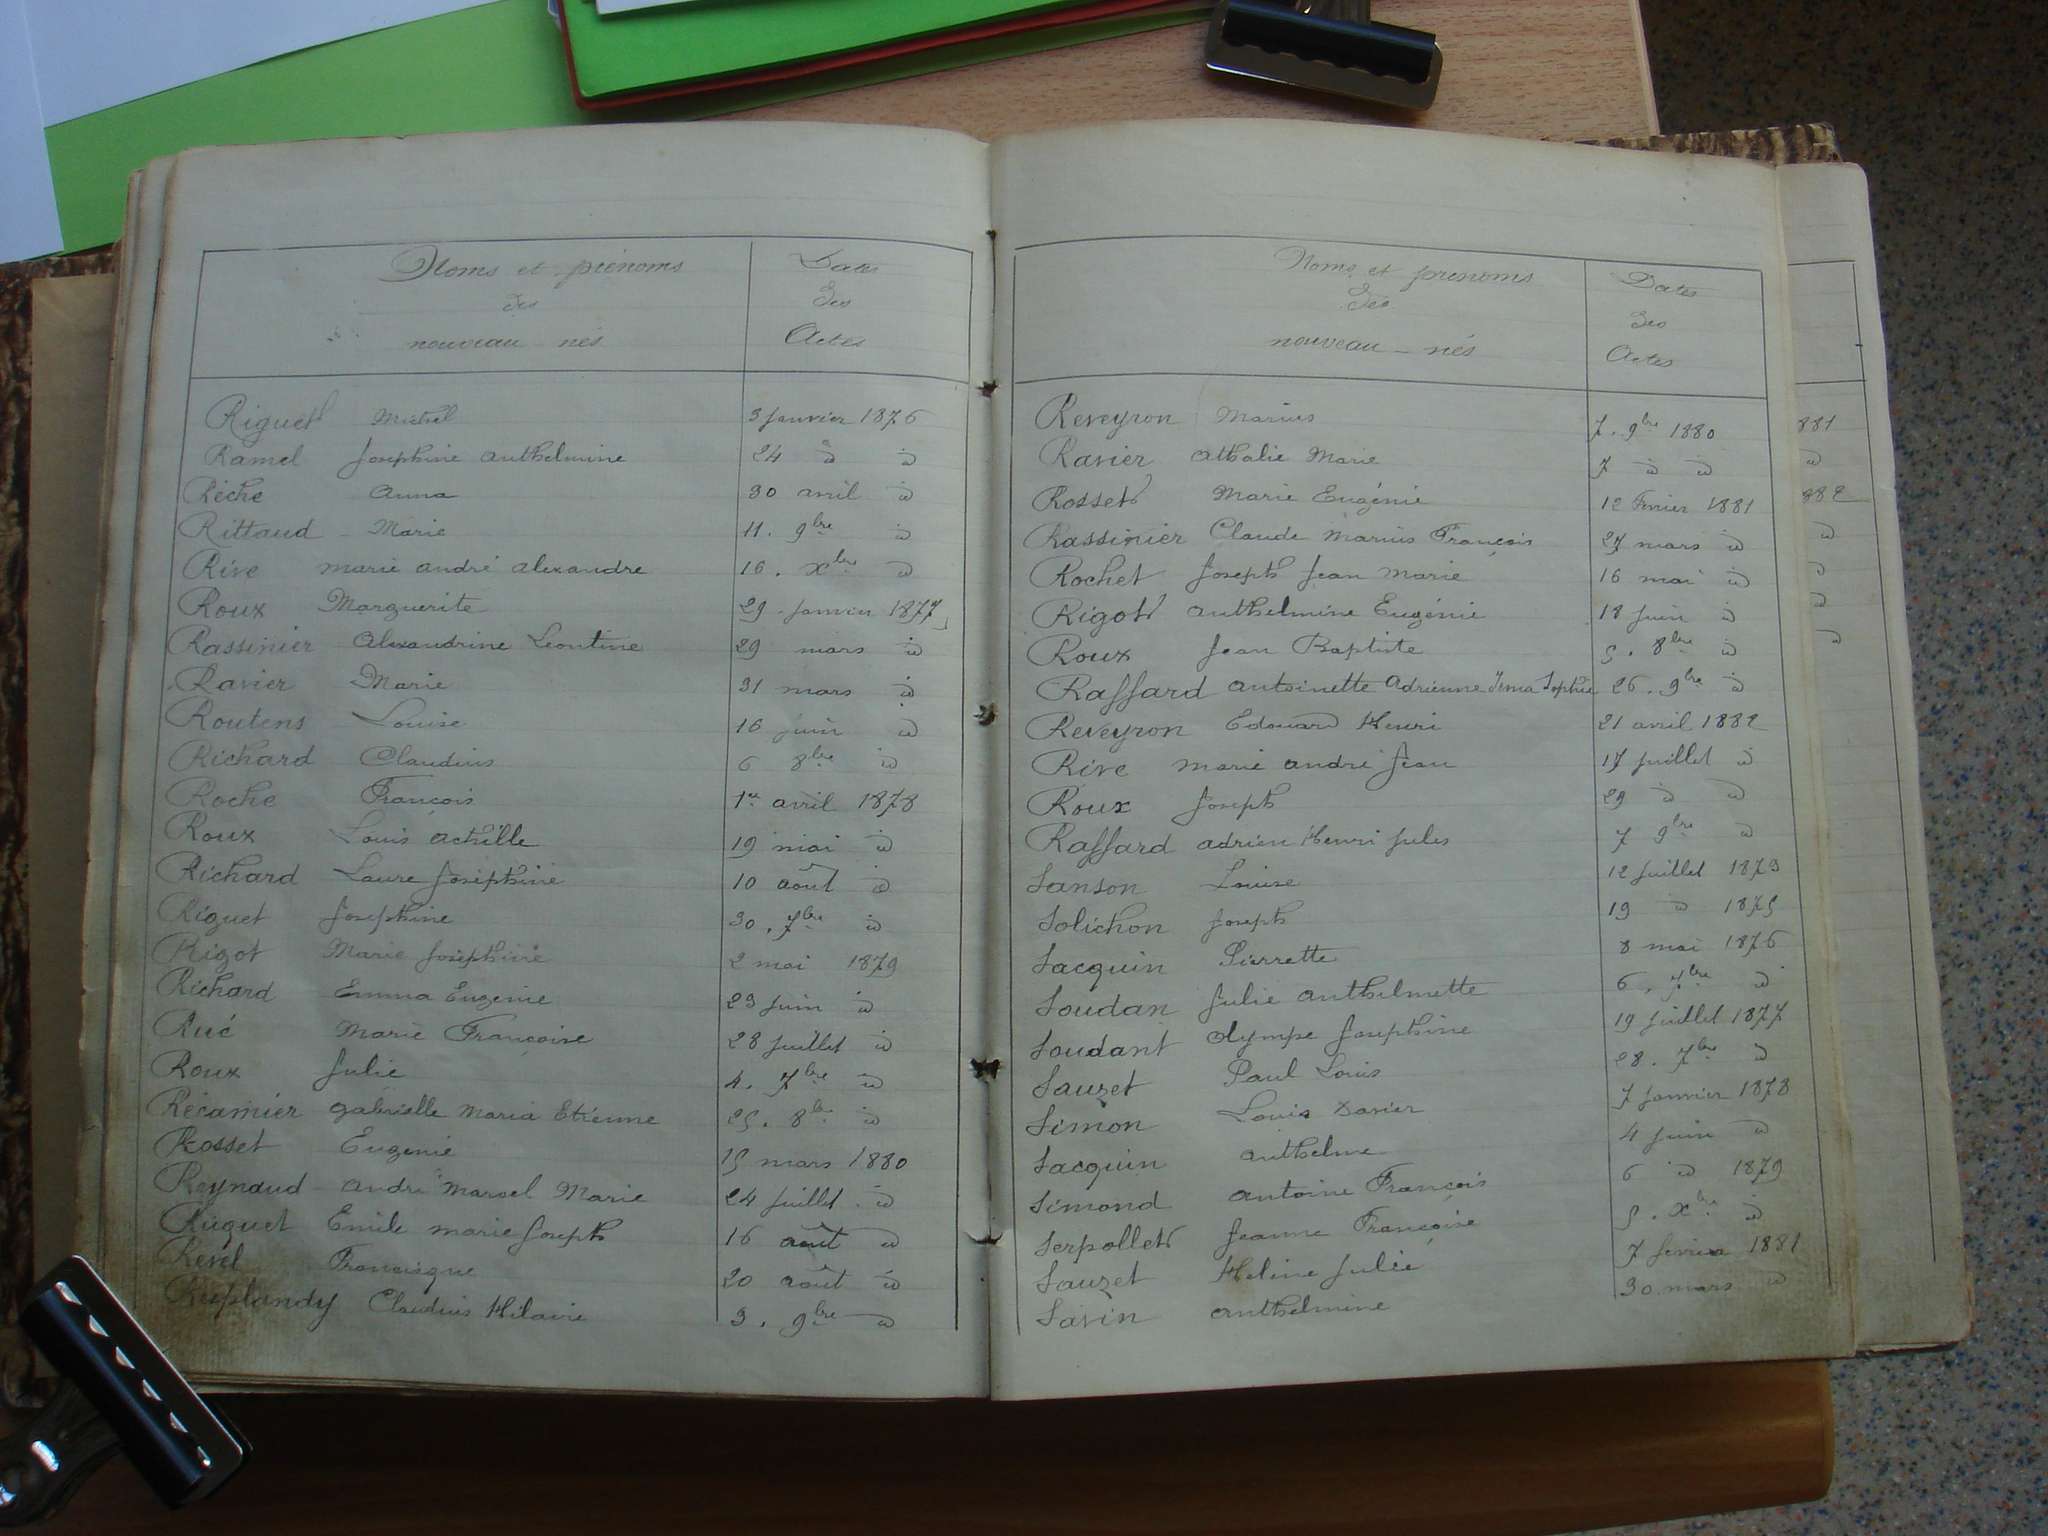 Noms et prénoms Dates
des des
nouveau-nés Actes
Riguet Michel 3 Janvier 1876
Ramel Joséphine Anthelmine 24 d° d°
Rêche Anna 30 avril d°
Rittaud Marie 11. 9bre d°
Rive Marie André Alexandre 16. Xbre d°
Roux Marguerite 29. Janvier 1877
Rassinier Alexandrine Léontine 29 mars d°
Ravier Marie 31 mars d°
Routens Louise 16 juin d°
Richard Claudius 6 8bre d°
Roche François 1er avril 1878
Roux Louis Achille 19 mai d°
Richard Laure Joséphine 10 août d°
Riguet Joséphine 30. 7bre d°
Rigot Marie Joséphine 2 mai 1879
Richard Emma Eugénie 23 Juin d°
Rué Marie Françoise 28 Juillet d°
Roux Julie 4. 7bre d°
Récamier Gabrielle Maria Etienne 25. 8bre d°
Rosset Eugénie 15 mars 1880
Reynaud André Marcel Marie 24 Juillet d°
Riguet Emile Marie Joseph 16 août d°
Revel Francisque 20 août d°
Ruplandy Claudius Hilaire 3. 9bre d°
Noms et prénoms Dates
des des
nouveau-nés Actes
Reveyron Marius 7. 9bre 1880
Ravier Athalie Marie 7 d° d°
Rosset Marie Eugénie 12 Février 1881
Rassinier Claude Marius François 27 mars d°
Rochet Joseph Jean Marie 16 mai d°
Rigot Anthelmine Eugénie 18 Juin d°
Roux Jean Baptiste 5. 8bre d°
Raffard Antoinette Adrienne Irma Sophie 26. 9bre d°
Reveyron Edouard Henri 21 avril 1882
Rive Marie André Jean 17 Juillet d°
Roux Joseph 29 d° d°
Raffard Adrien Henri Jules 7 9bre d°
Sanson Louise 12 Juillet 1873
Solichon Joseph 19 d° 1875
Sacquin Pierrette 8 mai 1876
Soudan Julie Anthelmette 6. 7bre d°
Soudant Olympe Joséphine 19 Juillet 1877
Sauzet Paul Louis 28. 7bre d°
Simon Louis Xavier 7 Janvier 1878
Sacquin Anthelme 4 Juin d°
Simond Antoine François 6 d° 1879
Serpollet Jeanne Françoise 5. Xbre d°
Sauzet Hélène Julie 7 février 1881
Savin Anthelmine 30 mars d°
881
d°
882
d°
d°
d°
d°